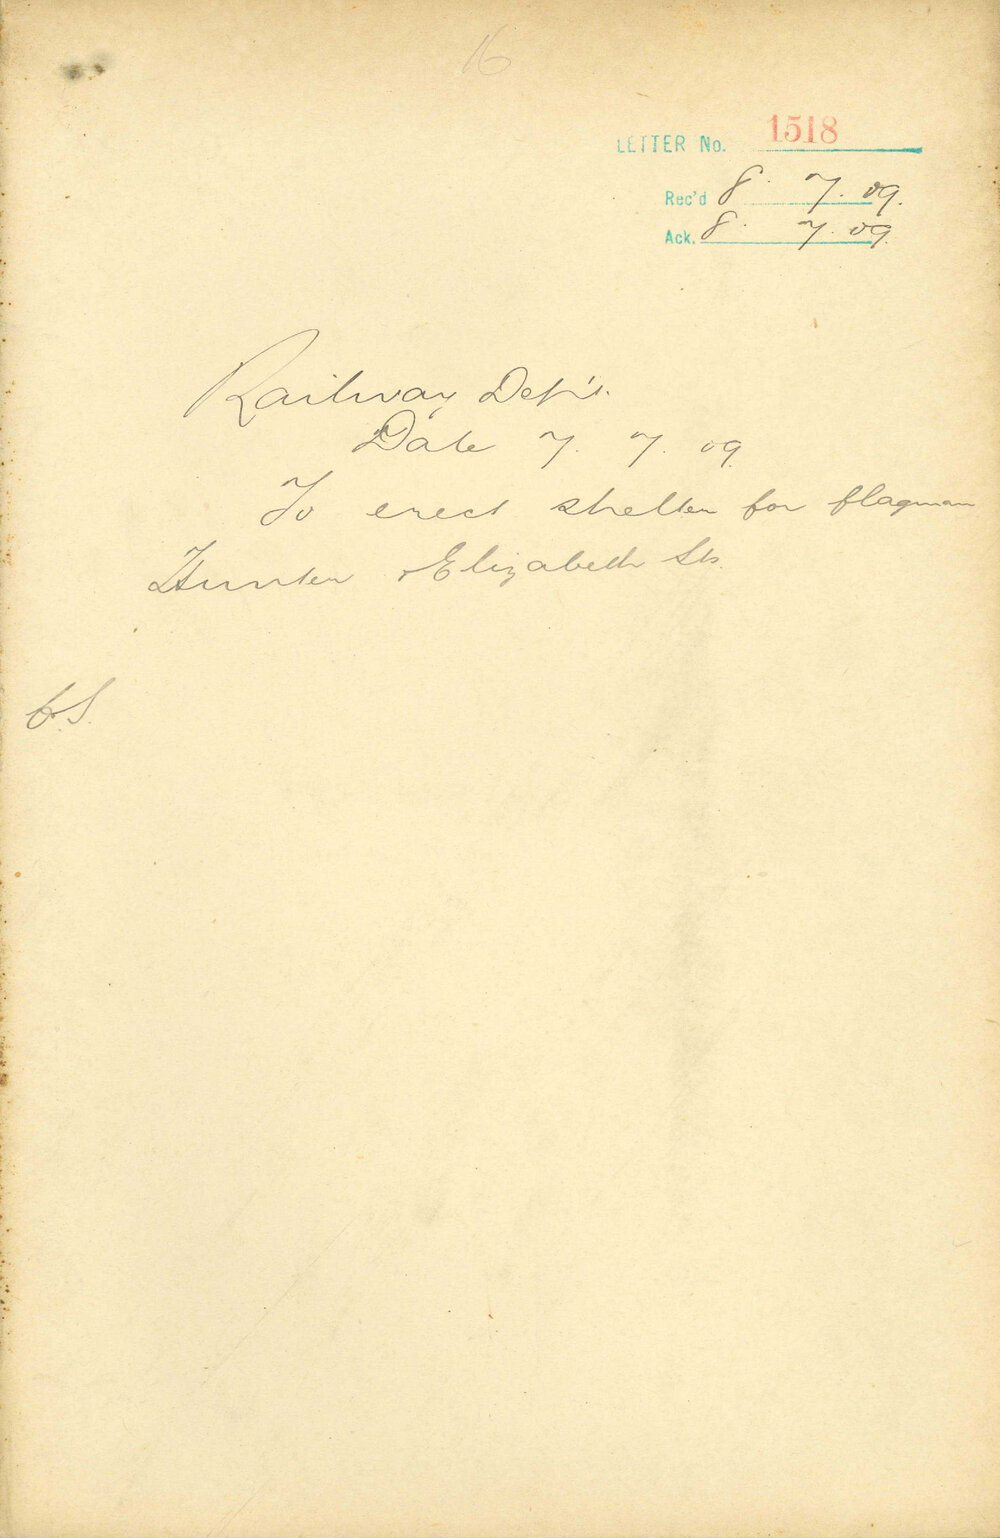 16
LETTER No. 1518
Rec'd 8. 7. 09.
Ack. 8. 7. 09.
Railway Dep't.
Date 7. 7. 09.
To erect shelter for flagman
Hunter & Elizabeth Sts.
C.S.